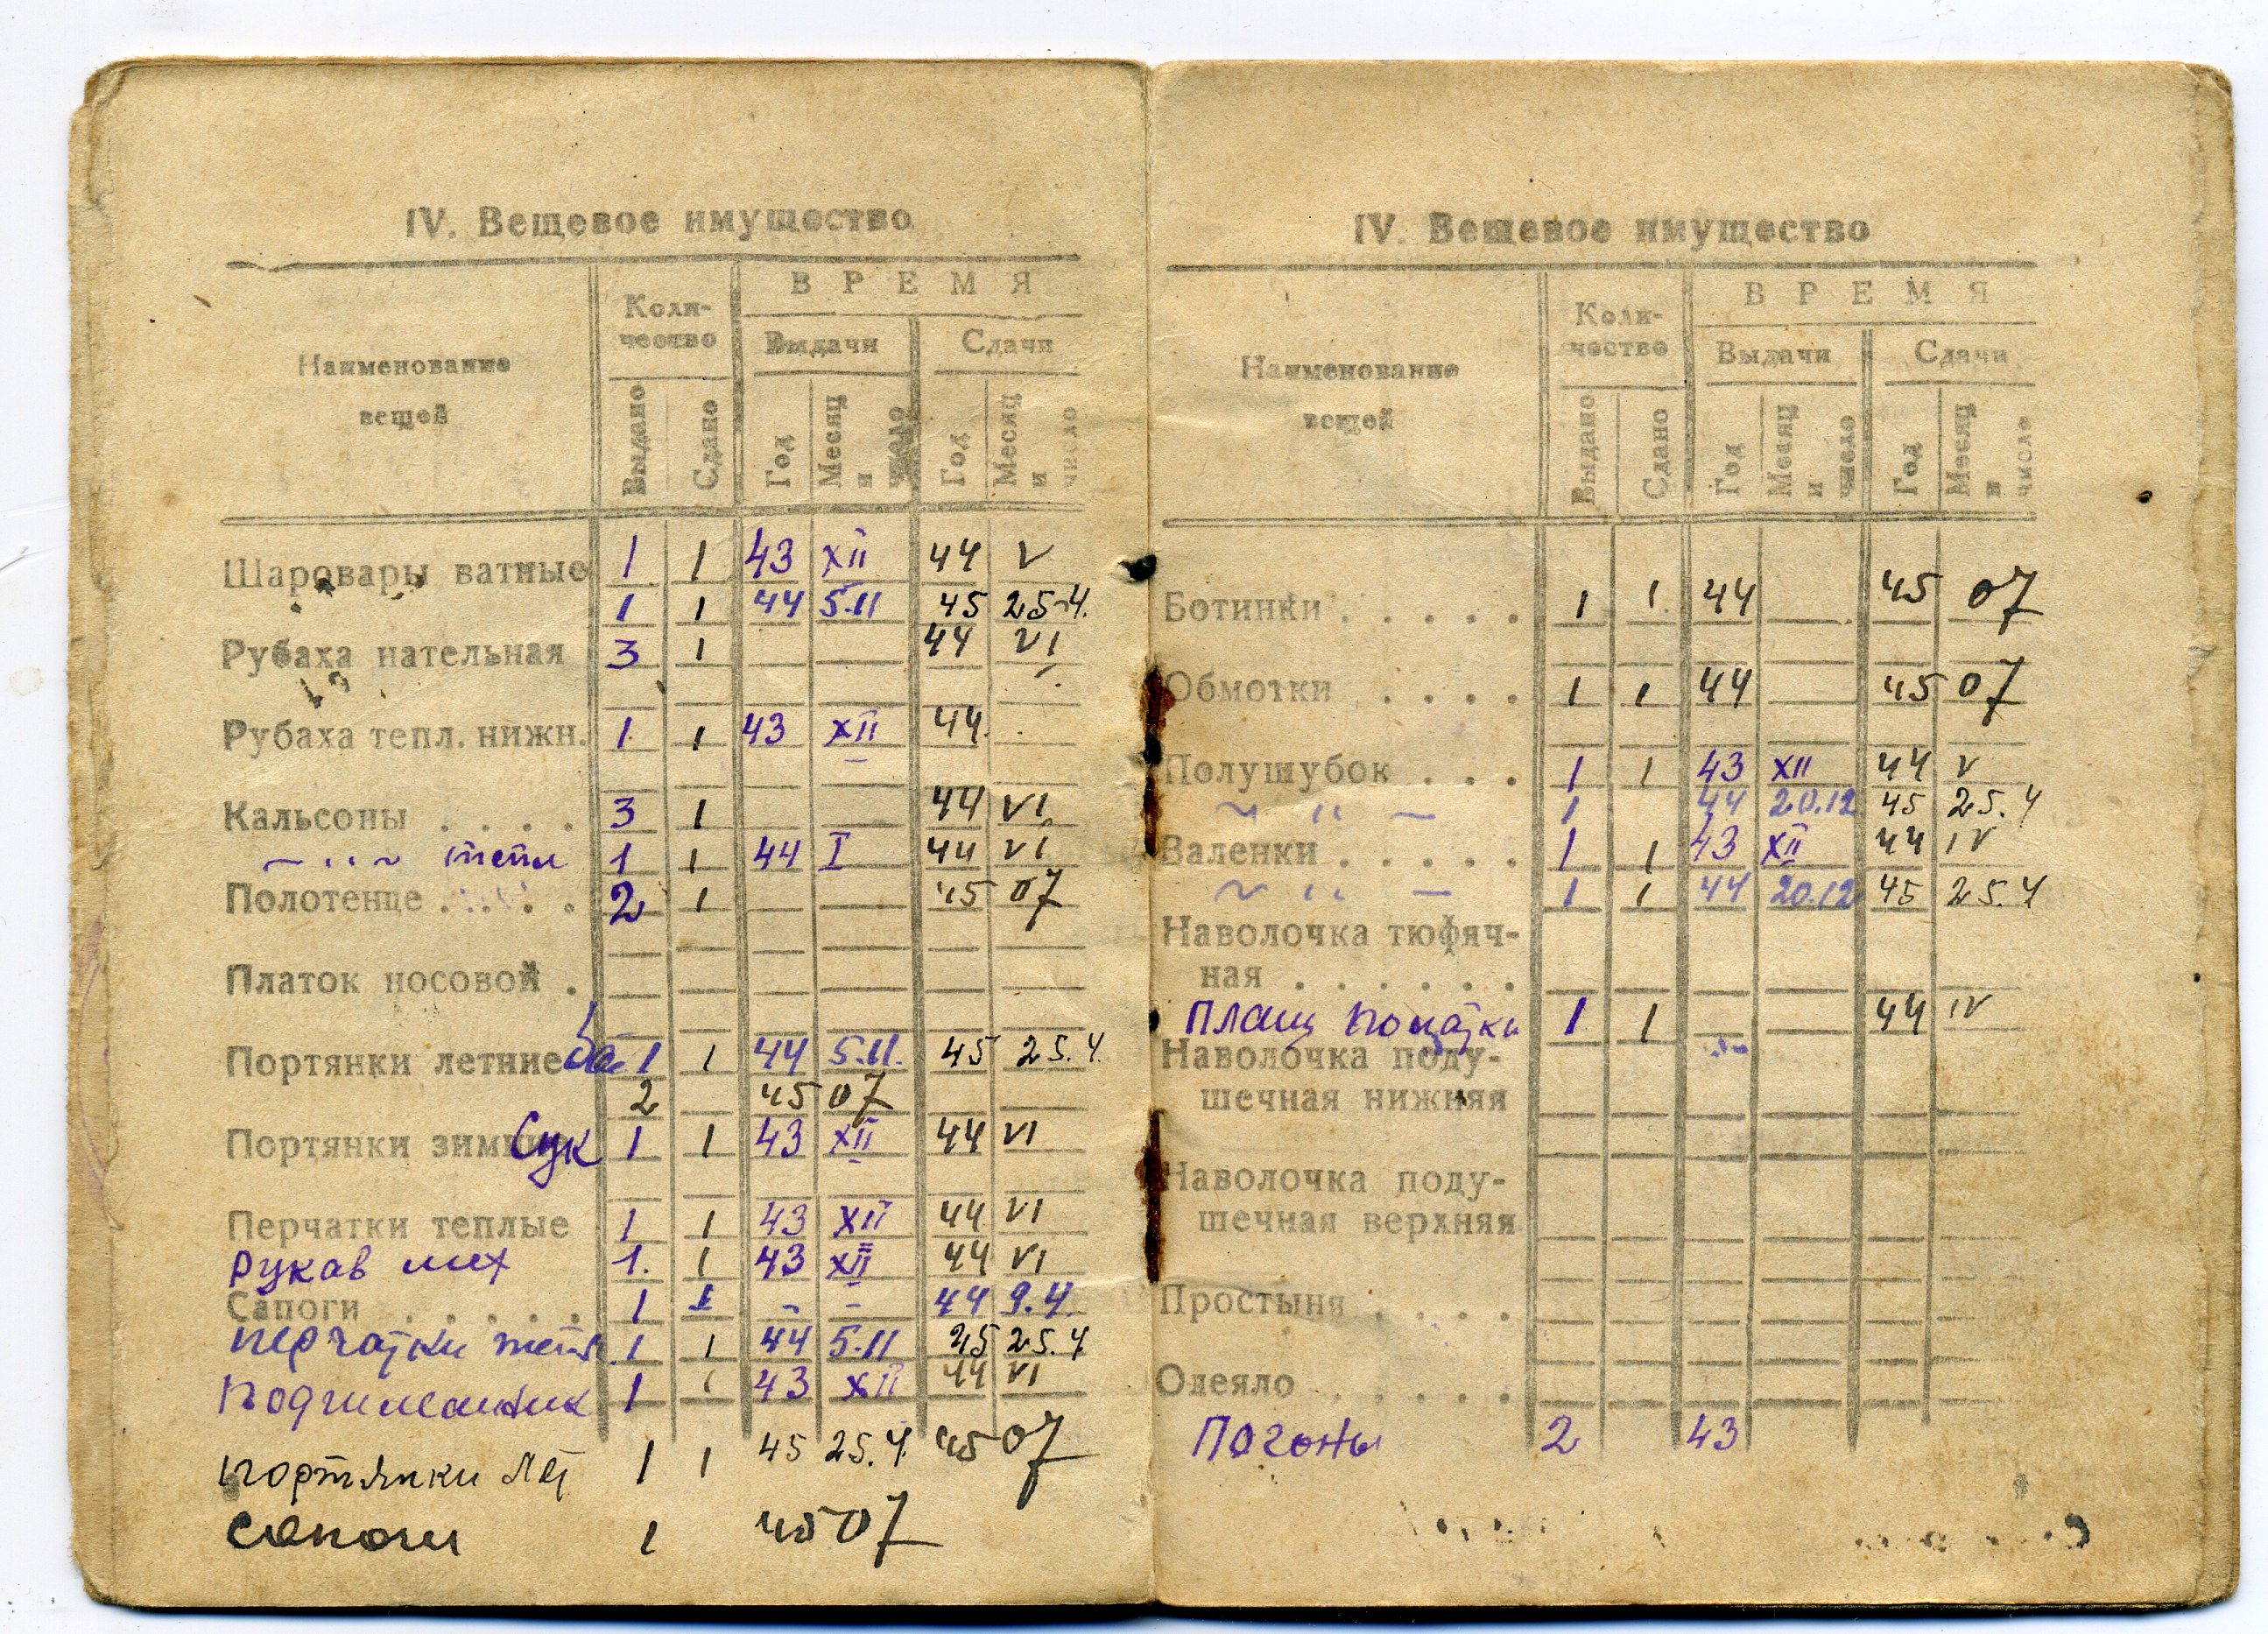 IV. Вещевое имущество
Наименование вещей
Коли-
чество
ВРЕМЯ
Выдачи
Сдачи
Выдано
Сдано
Год
Месяц и число
Год
Месяц и число
Шаровары ватные 1 1 43 XII 44 V
1 1 44 5.11 45 25.4.
Рубаха нательная 3 1 44 VI
Рубаха тепл. нижн. 1 1 43 XII 44
Кальсоны . . . . 3 1 44 VI
~ " ~ тепл 1 1 44 I 44 VI
Полотенце . . . . 2 1 45 07
Платок носовой .
Портянки летние 1 1 44 5.11. 45 25.4.
2 45 07
Портянки зимние Сук 1 1 43 XII 44 VI
Перчатки теплые 1 1 43 XII 44 VI
Рукав мех 1. 1 43 XII 44 VI
Сапоги . . . . . 1 1 - - 44 9.4
перчатки тепл 1 1 44 5.11 25 25.4
Подшлемник 1 1 43 XII 44 VI
портянки лет 1 1 45 25.4. 45 07
сапоги 1 45 07
IV. Вещевое имущество
Наименование вещей
Коли-
чество
ВРЕМЯ
Выдачи
Сдачи
Выдано
Сдано
Год
Месяц и число
Год
Месяц и число
Ботинки . . . . . 1 1 44 45 07
Обмотки . . . . 1 1 44 45 07
Полушубок . . . 1 1 43 XII 44 V
~ " — 1 1 44 20.12 45 25.4
Валенки . . . . . 1 1 43 XII 44 IV
~ " — 1 1 44 20.12 45 25.4
Наволочка тюфяч-
ная . . . . . .
Плащ палатки 1 1 44 IV
Наволочка поду-
шечная нижняя
Наволочка поду-
шечная верхняя
Простыня . . . .
Одеяло . . . . .
Погоны 2 43